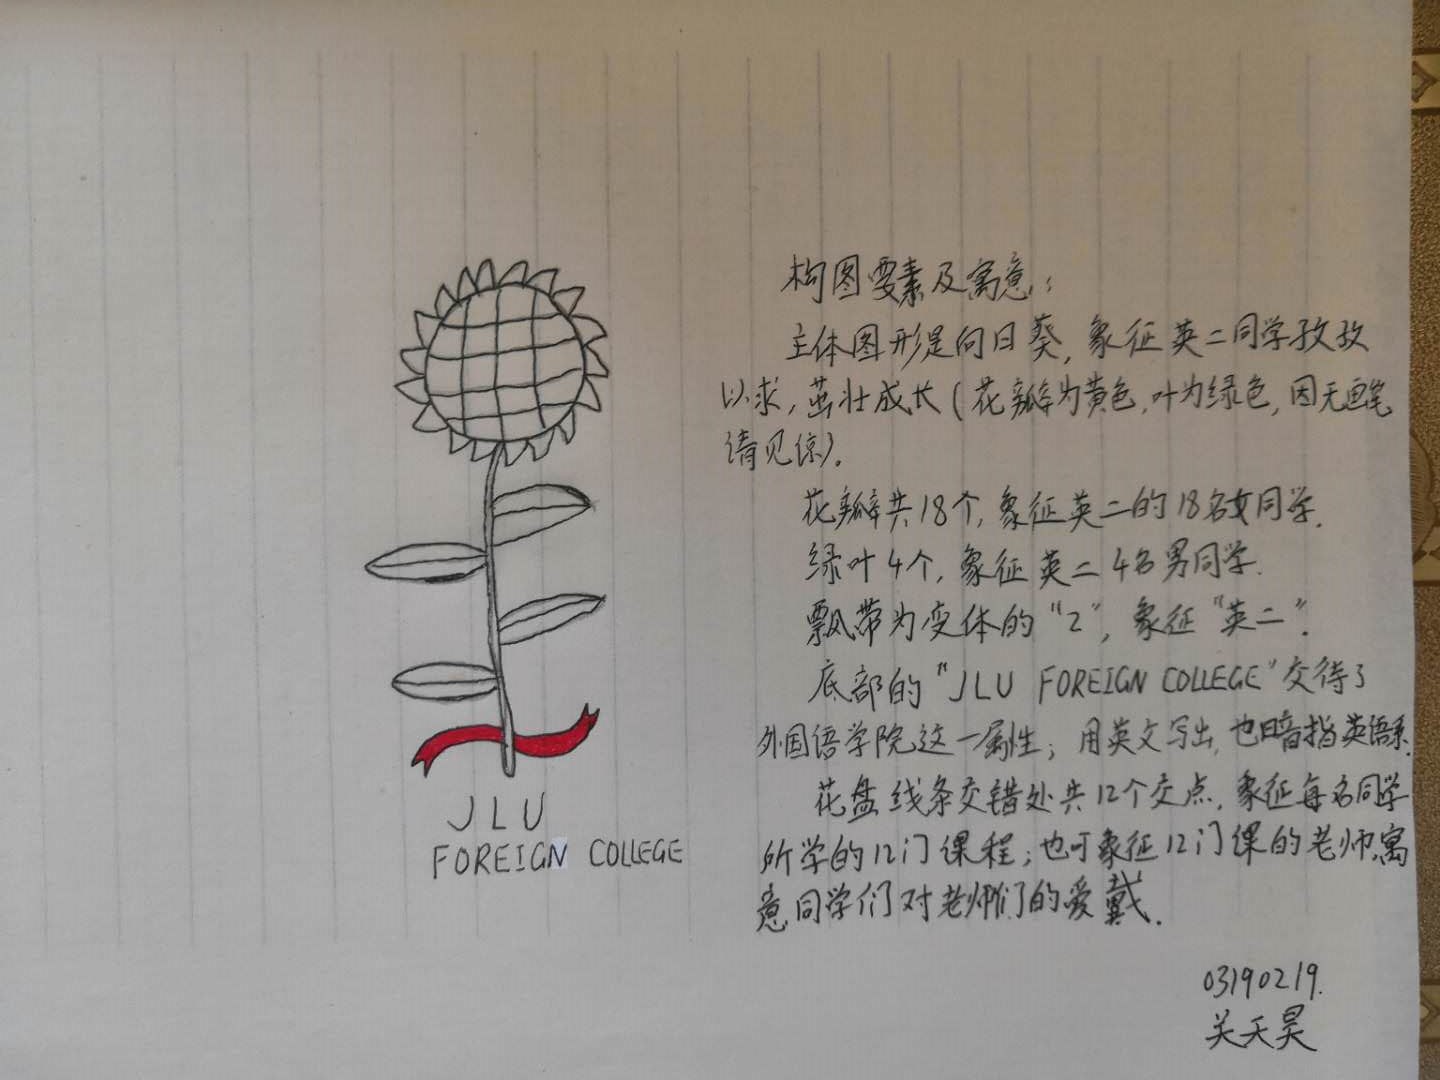 JLU
FOREIGN COLLEGE
构图要素及寓意：
主体图形是向日葵，象征英二同学孜孜
以求，茁壮成长（花瓣为黄色，叶为绿色，因无画笔
请见谅）。
花瓣共18个，象征英二的18名女同学.
绿叶4个，象征英二4名男同学.
飘带为变体的“2”，象征“英二”.
底部的“JLU FOREIGN COLLEGE”交待了
外国语学院这一属性；用英文写出，也暗指英语系.
花盘线条交错处共12个交点，象征每名同学
所学的12门课程；也可象征12门课的老师，寓
意同学们对老师们的爱戴.
03190219.
关天昊